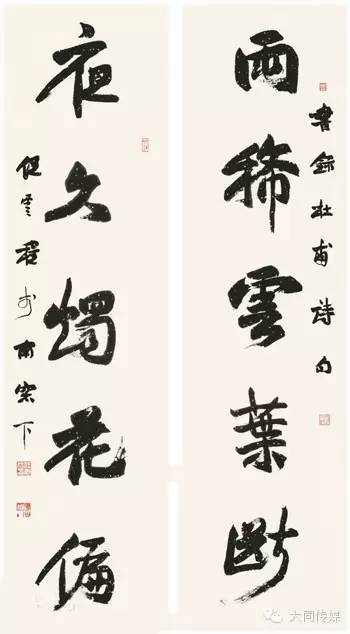 雨稀雲葉斷
書錄杜甫詩句
夜久燭花偏
雲程於南窗下
大同传媒